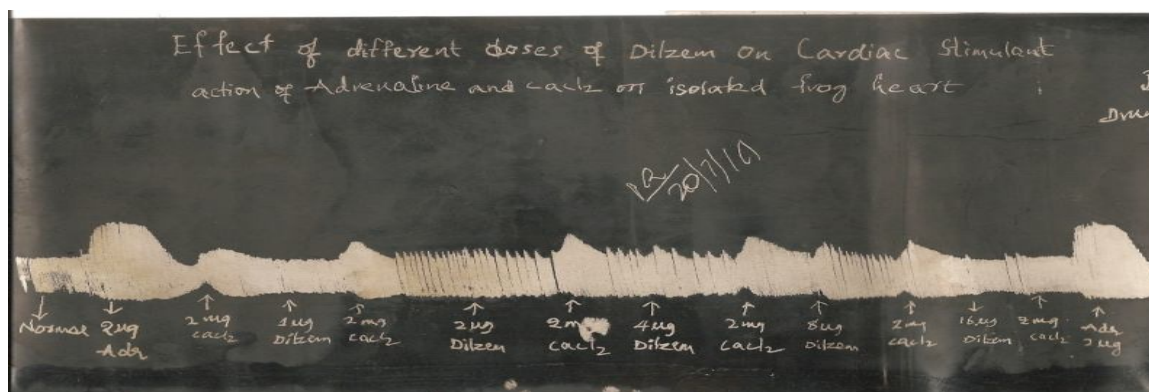 Effect of different doses of Dilzem on Cardiac Stimulant
action of Adrenaline and cacl2 on isolated frog heart
20/7/19
Normal
2µg
Adr
2mg
cacl2
1µg
Dilzem
2mg
cacl2
2µg
Dilzem
2mg
cacl2
4µg
Dilzem
2mg
cacl2
8µg
Dilzem
2mg
cacl2
16µg
Dilzem
2mg
cacl2
Adr
2µg